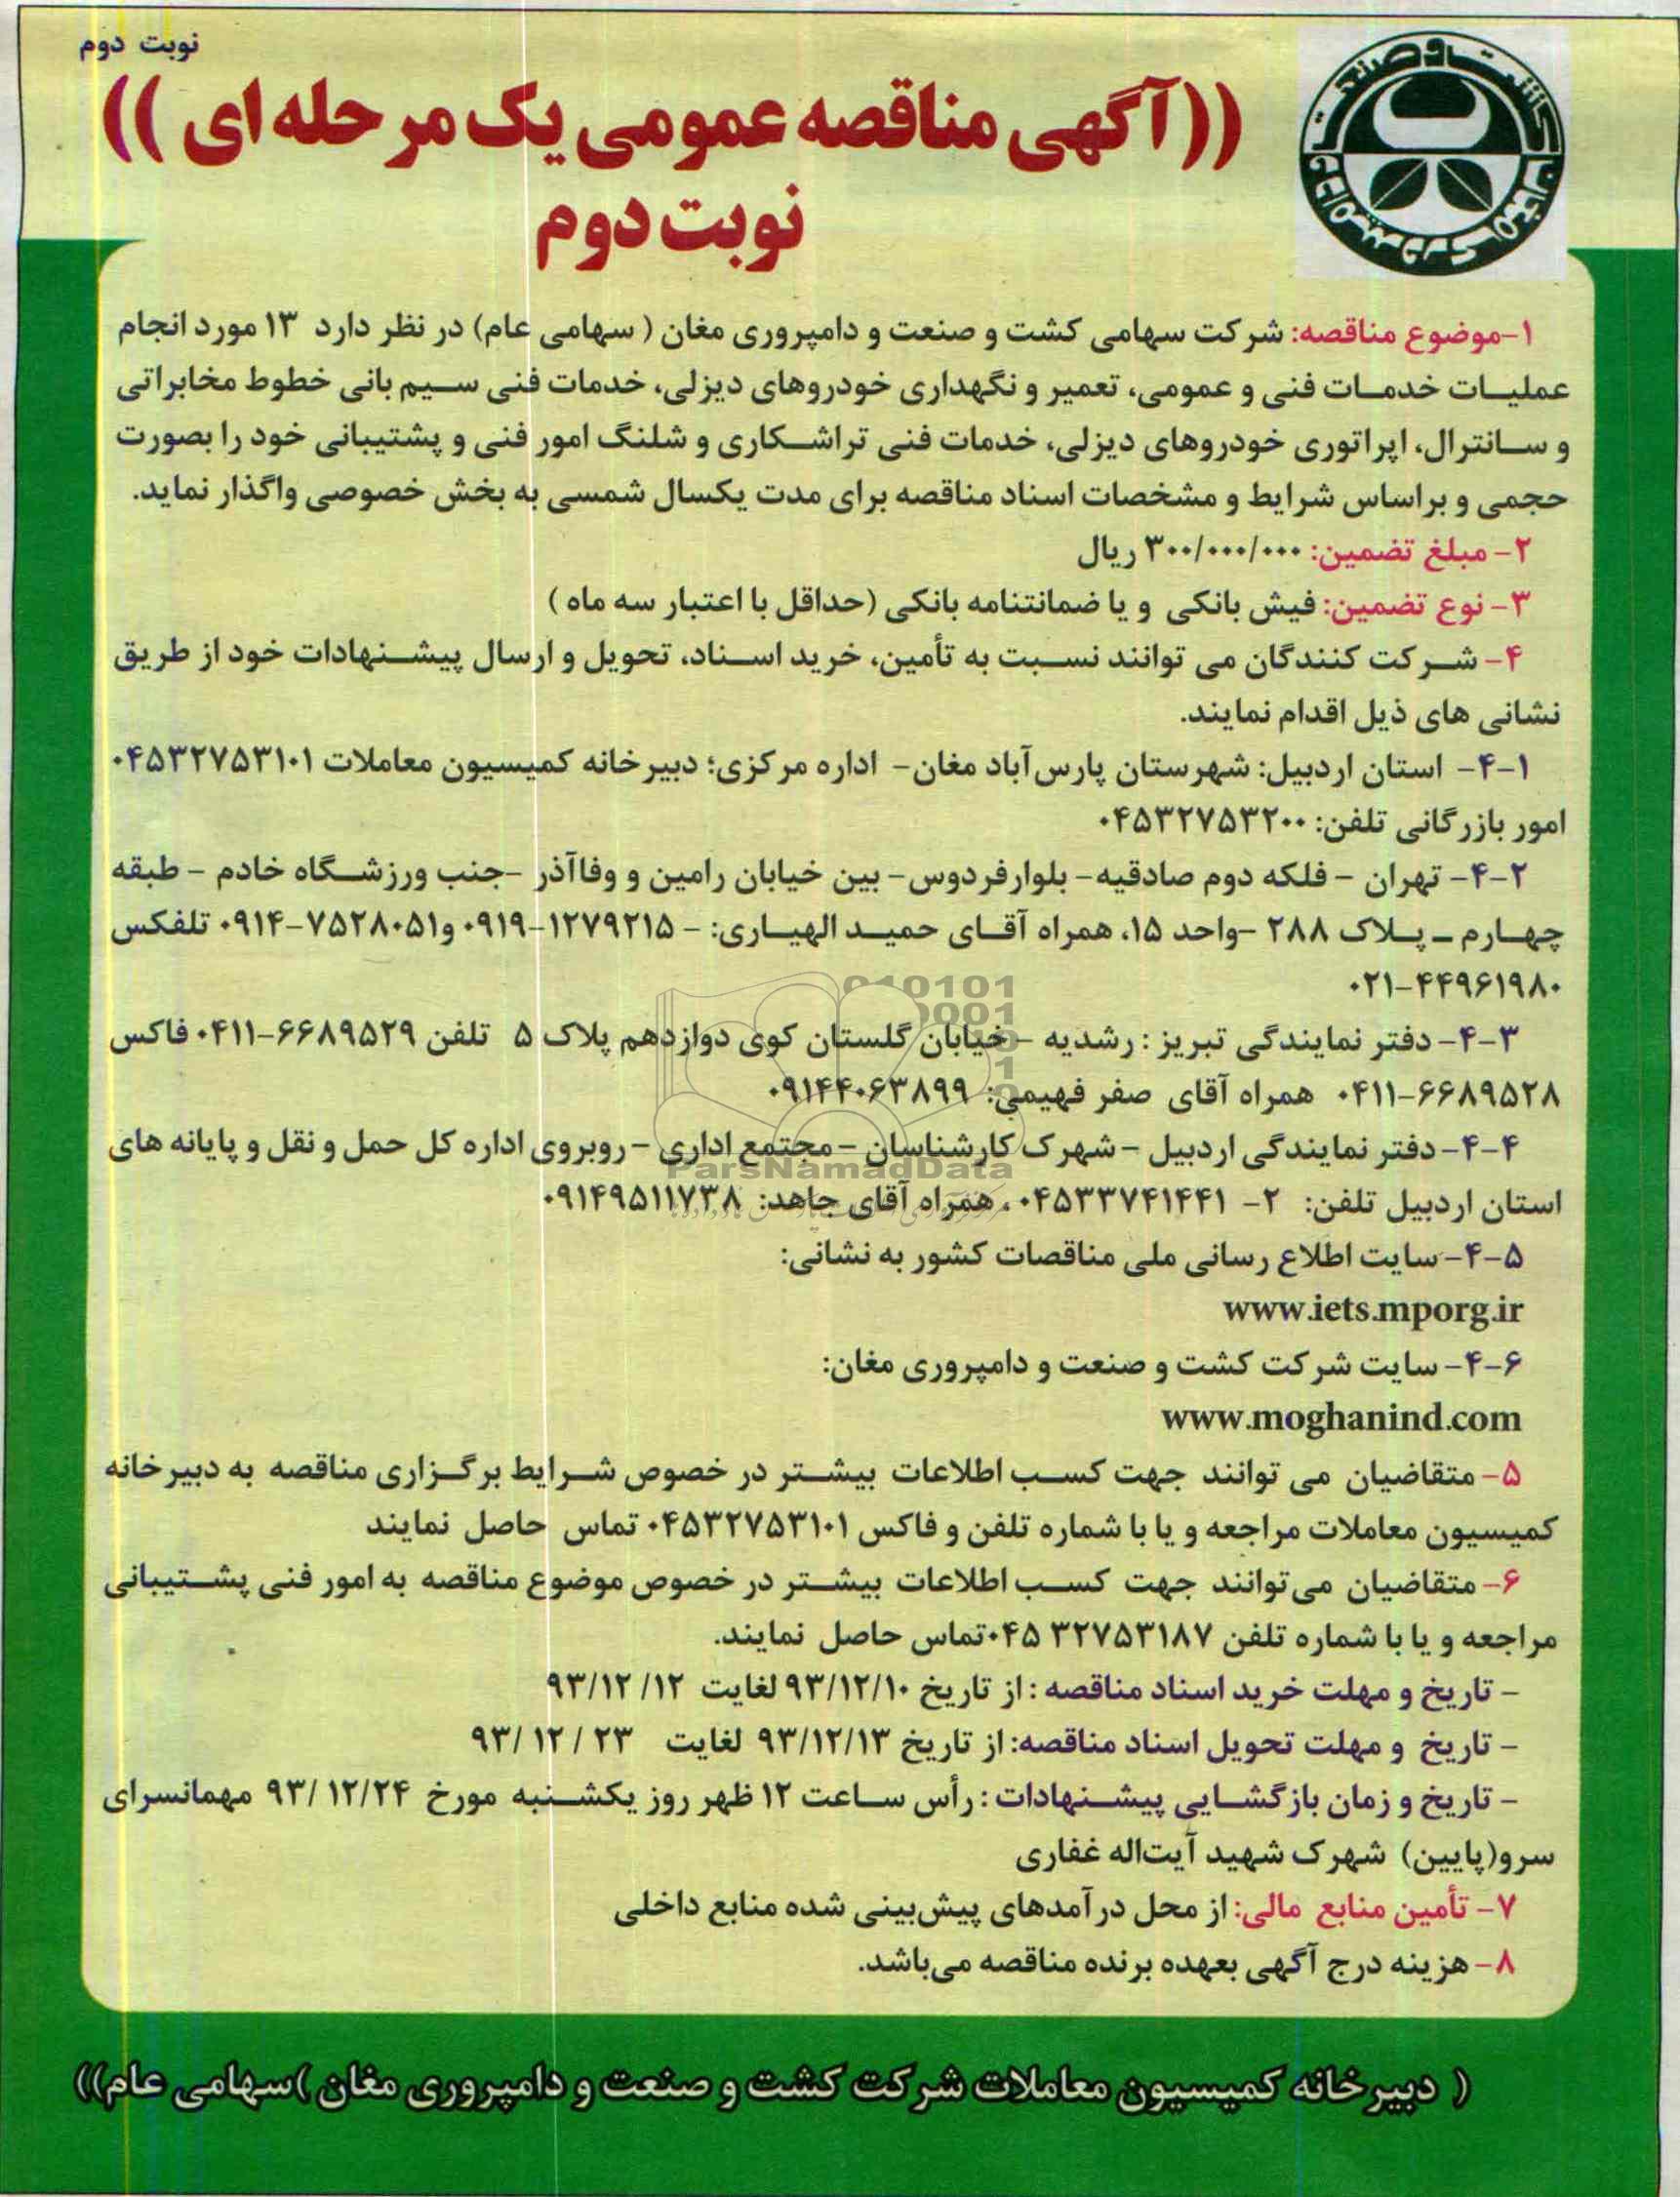 نوبت دوم
((آگهی مناقصه عمومی یک مرحله ای ))
نوبت دوم
۱-موضوع مناقصه: شرکت سهامی کشت و صنعت و دامپروری مغان ( سهامی عام) در نظر دارد ۱۳ مورد انجام
عملیات خدمات فنی و عمومی، تعمیر و نگهداری خودروهای دیزلی، خدمات فنی سیم بانی خطوط مخابراتی
و سانترال، اپراتوری خودروهای دیزلی، خدمات فنی تراشکاری و شلنگ امور فنی و پشتیبانی خود را بصورت
حجمی و براساس شرایط و مشخصات اسناد مناقصه برای مدت یکسال شمسی به بخش خصوصی واگذار نماید.
۲- مبلغ تضمین: ۳۰۰/۰۰۰/۰۰۰ ریال
۳- نوع تضمین: فیش بانکی و یا ضمانتنامه بانکی (حداقل با اعتبار سه ماه )
۴- شرکت کنندگان می توانند نسبت به تأمین، خرید اسناد، تحویل و ارسال پیشنهادات خود از طریق
نشانی های ذیل اقدام نمایند.
۴-۱- استان اردبیل: شهرستان پارس آباد مغان- اداره مرکزی؛ دبیرخانه کمیسیون معاملات ۰۴۵۳۲۷۵۳۱۰۱
امور بازرگانی تلفن: ۰۴۵۳۲۷۵۳۲۰۰
۴-۲- تهران - فلکه دوم صادقیه- بلوارفردوس- بین خیابان رامین و وفاآذر -جنب ورزشگاه خادم - طبقه
چهارم - پلاک ۲۸۸ -واحد ۱۵، همراه آقای حمید الهیاری: - ۱۲۷۹۲۱۵-۰۹۱۹ و۷۵۲۸۰۵۱-۰۹۱۴ تلفکس
۰۲۱-۴۴۹۶۱۹۸۰
۴-۳- دفتر نمایندگی تبریز : رشدیه - خیابان گلستان کوی دوازدهم پلاک ۵ تلفن ۶۶۸۹۵۲۹-۰۴۱۱ فاکس
۶۶۸۹۵۲۸-۰۴۱۱ همراه آقای صفر فهیمی: ۰۹۱۴۴۰۶۳۸۹۹
۴-۴- دفتر نمایندگی اردبیل - شهرک کارشناسان - مجتمع اداری - روبروی اداره کل حمل و نقل و پایانه های
استان اردبیل تلفن: ۲- ۰۴۵۳۳۷۴۱۴۴۱ ، همراه آقای جاهد: ۰۹۱۴۹۵۱۱۷۳۸
۴-۵- سایت اطلاع رسانی ملی مناقصات کشور به نشانی:
www.iets.mporg.ir
۴-۶- سایت شرکت کشت و صنعت و دامپروری مغان:
www.moghanind.com
۵- متقاضیان می توانند جهت کسب اطلاعات بیشتر در خصوص شرایط برگزاری مناقصه به دبیرخانه
کمیسیون معاملات مراجعه و یا با شماره تلفن و فاکس ۰۴۵۳۲۷۵۳۱۰۱ تماس حاصل نمایند
۶- متقاضیان می‌توانند جهت کسب اطلاعات بیشتر در خصوص موضوع مناقصه به امور فنی پشتیبانی
مراجعه و یا با شماره تلفن ۳۲۷۵۳۱۸۷ ۰۴۵تماس حاصل نمایند.
- تاریخ و مهلت خرید اسناد مناقصه : از تاریخ ۹۳/۱۲/۱۰ لغایت ۹۳/۱۲ /۱۲
- تاریخ و مهلت تحویل اسناد مناقصه: از تاریخ ۹۳/۱۲/۱۳ لغایت ۹۳/ ۱۲ / ۲۳
- تاریخ و زمان بازگشایی پیشنهادات : رأس ساعت ۱۲ ظهر روز یکشنبه مورخ ۹۳/ ۱۲/۲۴ مهمانسرای
سرو(پایین) شهرک شهید آیت‌اله غفاری
۷- تأمین منابع مالی: از محل درآمدهای پیش‌بینی شده منابع داخلی
۸- هزینه درج آگهی بعهده برنده مناقصه می‌باشد.
( دبیرخانه کمیسیون معاملات شرکت کشت و صنعت و دامپروری مغان )سهامی عام))
ParsNamadData